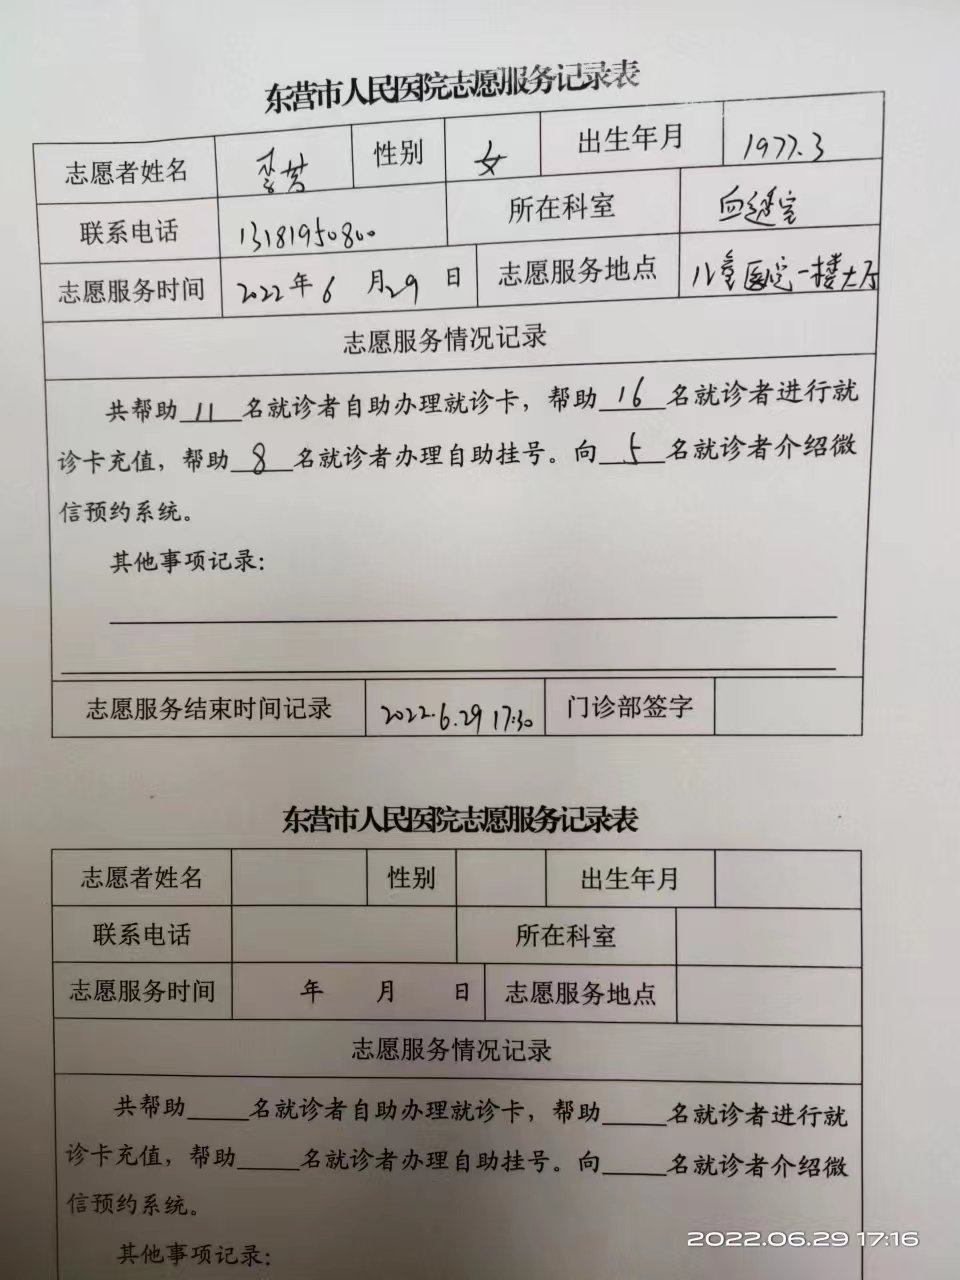 东营市人民医院志愿服务记录表
志愿者姓名 李芸 性别 女 出生年月 1977.3
联系电话 13181950800 所在科室 血透室
志愿服务时间 2022年6月29日 志愿服务地点 儿童医院一楼大厅
志愿服务情况记录
共帮助11名就诊者自助办理就诊卡，帮助16名就诊者进行就
诊卡充值，帮助8名就诊者办理自助挂号。向5名就诊者介绍微
信预约系统。
其他事项记录：
志愿服务结束时间记录 2022.6.29 17:30 门诊部签字
东营市人民医院志愿服务记录表
志愿者姓名 性别 出生年月
联系电话 所在科室
志愿服务时间 年 月 日 志愿服务地点
志愿服务情况记录
共帮助_____名就诊者自助办理就诊卡，帮助_____名就诊者进行就
诊卡充值，帮助_____名就诊者办理自助挂号。向_____名就诊者介绍微
信预约系统。
其他事项记录：
2022.06.29 17:16